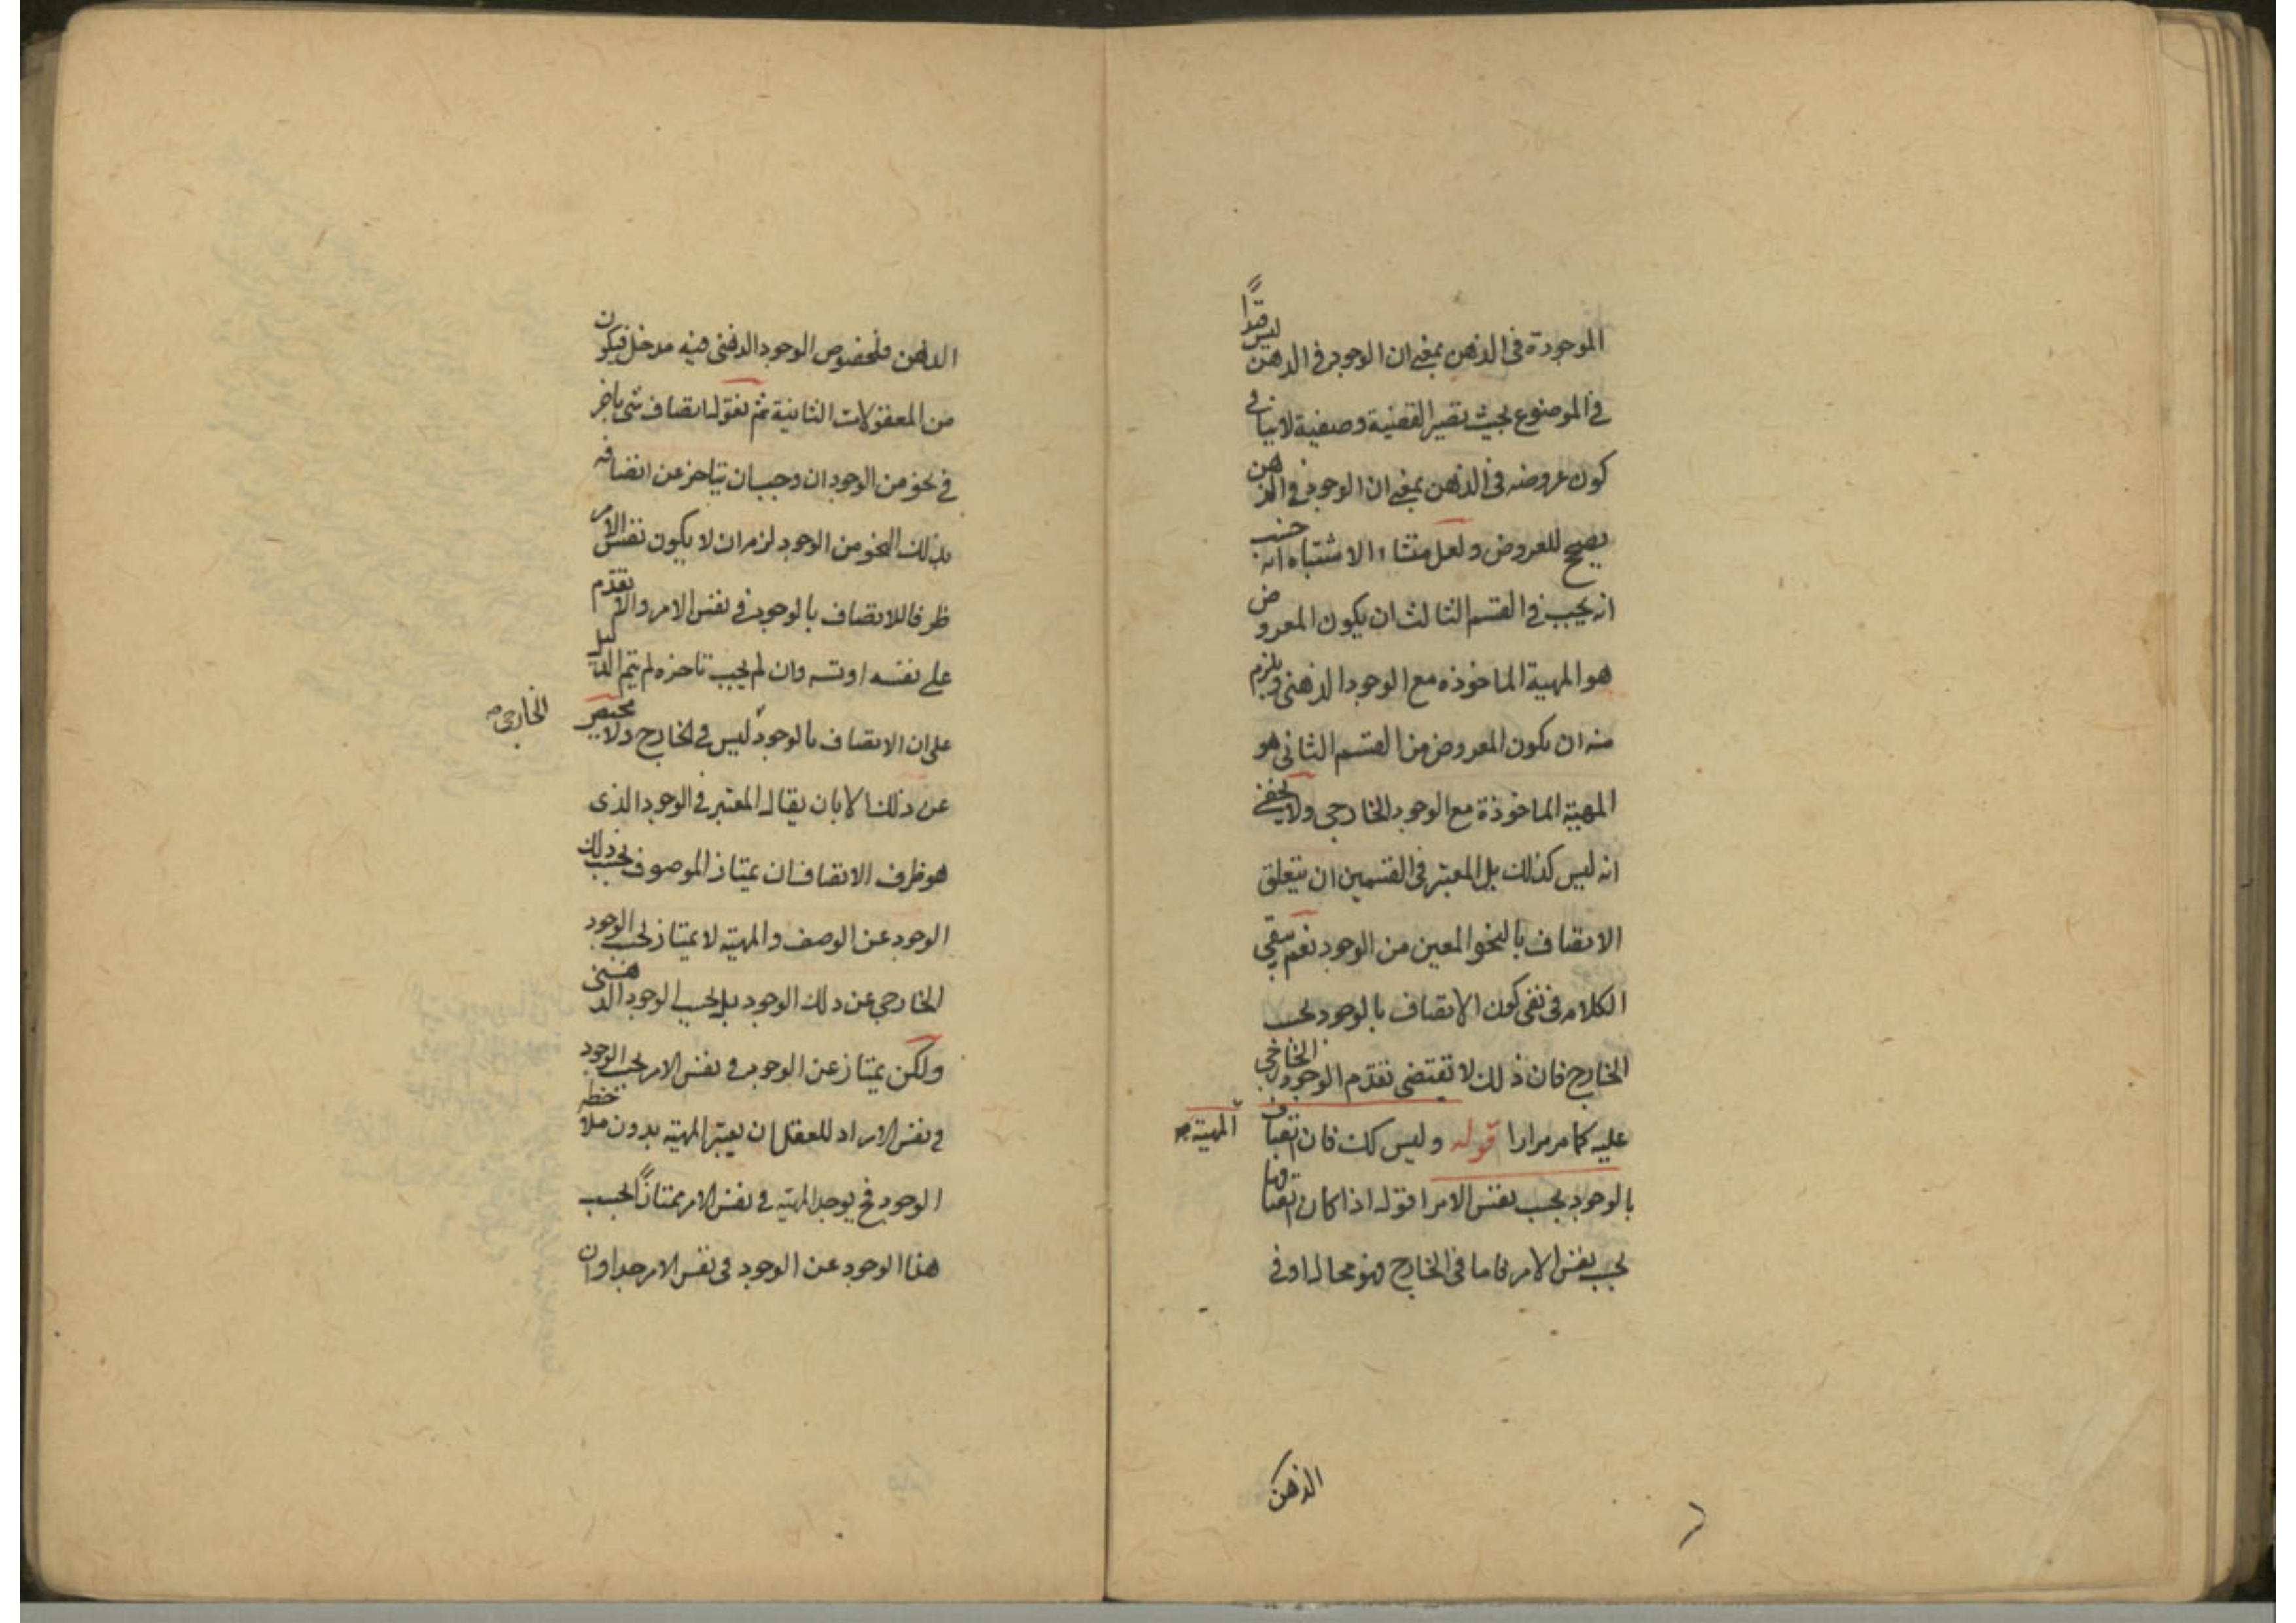 الموجودة في الذهن بمعنى ان الوجود في الذهن ليس قيدًا
في الموضوع بحيث تصير القضية وصفية لا ينافي
كون عروضه في الذهن بمعنى ان الوجود في الذهن
يصحح للعروض ولعل منشاء الاشتباه انه حسب
انه يجب في القسم الثالث ان يكون المعروض
هو المهية الماخوذه مع الوجود الذهني ويلزم
منه ان يكون المعروض من القسم الثاني هو
المهية الماخوذة مع الوجود الخارجي ولا يخفى
انه ليس كذلك بل المعتبر في القسمين ان يتعلق
الاتصاف بالنحو المعين من الوجود نعم يبقى
الكلام في نفي كون الاتصاف بالوجود بحسب
الخارج فان ذلك لا تقتضي تقدم الوجود الخارجي
عليه كما مر مرارا قوله وليس كك فان اتصاف
المهية صح
بالوجود بحسب نفس الامر اقول اذا كان اتصافها
بحسب نفس الامر فاما في الخارج فهو محال او في
الذهن
الذهن فلخصوص الوجود الذهني فيه مدخل فيكون
من المعقولات الثانية ثم نقول اتصاف شي باخر
في نحو من الوجود ان وجب ان يتاخر عن اتصافه
بذلك النحو من الوجود لزم ان لا يكون نفس الامر
ظرفا للاتصاف بالوجود في نفس الامر والا تقدم
على نفسه او تسه وان لم يجب تاخره لم يتم الدليل
على ان الاتصاف بالوجود ليس في الخارج ولا محيص
الخارجي صح
عن ذلك الا بان يقال المعتبر في الوجود الذى
هو ظرف الاتصاف ان يمتاز الموصوف بحسب ذلك
الوجود عن الوصف والمهية لا يمتاز بحسب الوجود
الخارجي عن ذلك الوجود بل بحسب الوجود الذهني
ولكن يمتاز عن الوجود في نفس الامر بحسب الوجود
في نفس الامر اذ للعقل ان يعتبر المهية بدون ملاحظه
الوجود فح يوجد المهية في نفس الامر ممتازًا بحسب
هذا الوجود عن الوجود في نفس الامر جدا وان